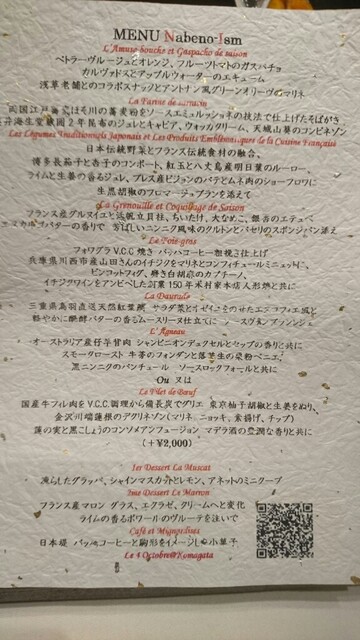 MENU Nabeno-Ism
L'Amuse bouche et Gaspacho de saison
ベトラーヴルージュとオレンジ、フルーツトマトのガスパチョ
カルヴァドスとアップルウォーターのエキューム
浅草老舗とのコラボスナックとアントナン風グリーンオリーヴのマリネ
La Farine de sarrasin
両国江戸蕎麦ほそ川の蕎麦粉をソースエミュルッショネの技法で仕上げたそばがき
奥井海生堂蔵囲2年昆布のジュレとキャビア、ウォッカクリーム、天城山葵のコンビネゾン
Les Légumes Traditionnels Japonais et Les Produits Emblématiques de la Cuisine Française
日本伝統野菜とフランス伝統食材の融合、
博多長茄子と杏子のコンポート、紅玉と八丈島産明日葉のルロー、
ライムと生姜の香るジュレ、ブレス産ピジョンのパテとムネ肉のショーフロワに
生黒胡椒のフロマージュブランを添えて
La Grenouille et Coquillage de Saison
フランス産グルヌイエと活帆立貝柱、ちいたけ、大なめこ、銀杏のエテュベ
バターの香りで 芳しいニンニク風味のクルトンとパセリのスポンジパン添え
Le Foie-gras
フォワグラV.C.C焼き バッハコーヒー粗挽き仕立て
兵庫県川西市産山田さんのイチジクをマリネとコンフィチュールミニュットに、
ピンコットフィグ、磨き白胡麻のカプチーノ、
イチジクワインをアンビベした創業150年木村家本店人形焼と共に
La Daurade
三重県鳥羽直送天然紅葉鯛
軽やかに醗酵バターの香るムースリーヌ仕立てに
L'Agneau
オーストラリア産仔羊背肉 シャンピニオンデュクセルとセップの香りと共に
スモークロースト 牛蒡のフォンダンと落花生の染粉ベニエ、
黒ニンニクのパンチュール ソースロックフォールと共に
Ou 又は
Le Filet de Bœuf
国産牛フィレ肉をV.C.C.調理から備長炭でグリエ 東京柚子胡椒と生姜をぬり、
金沢川端蓮根のデクリネゾン(マリネ ニョッキ、素揚げ、チップ)
蓮の実と黒こしょうのコンソメアンフュージョン マデラ酒の豊潤な香りと共に
(+¥2,000)
1er Dessert La Muscat
凍らしたグラッパ、シャインマスカットとレモン、アネットのミニクープ
2me Dessert Le Marron
フランス産マロン グラス、エクラゼ、クリームへと変化
ライムの香るポワールのヴルーテを注いで
Café et Mignardises
日本堤 バッハコーヒーと駒形をイメージした小菓子
Le 4 Octobre@Komagata